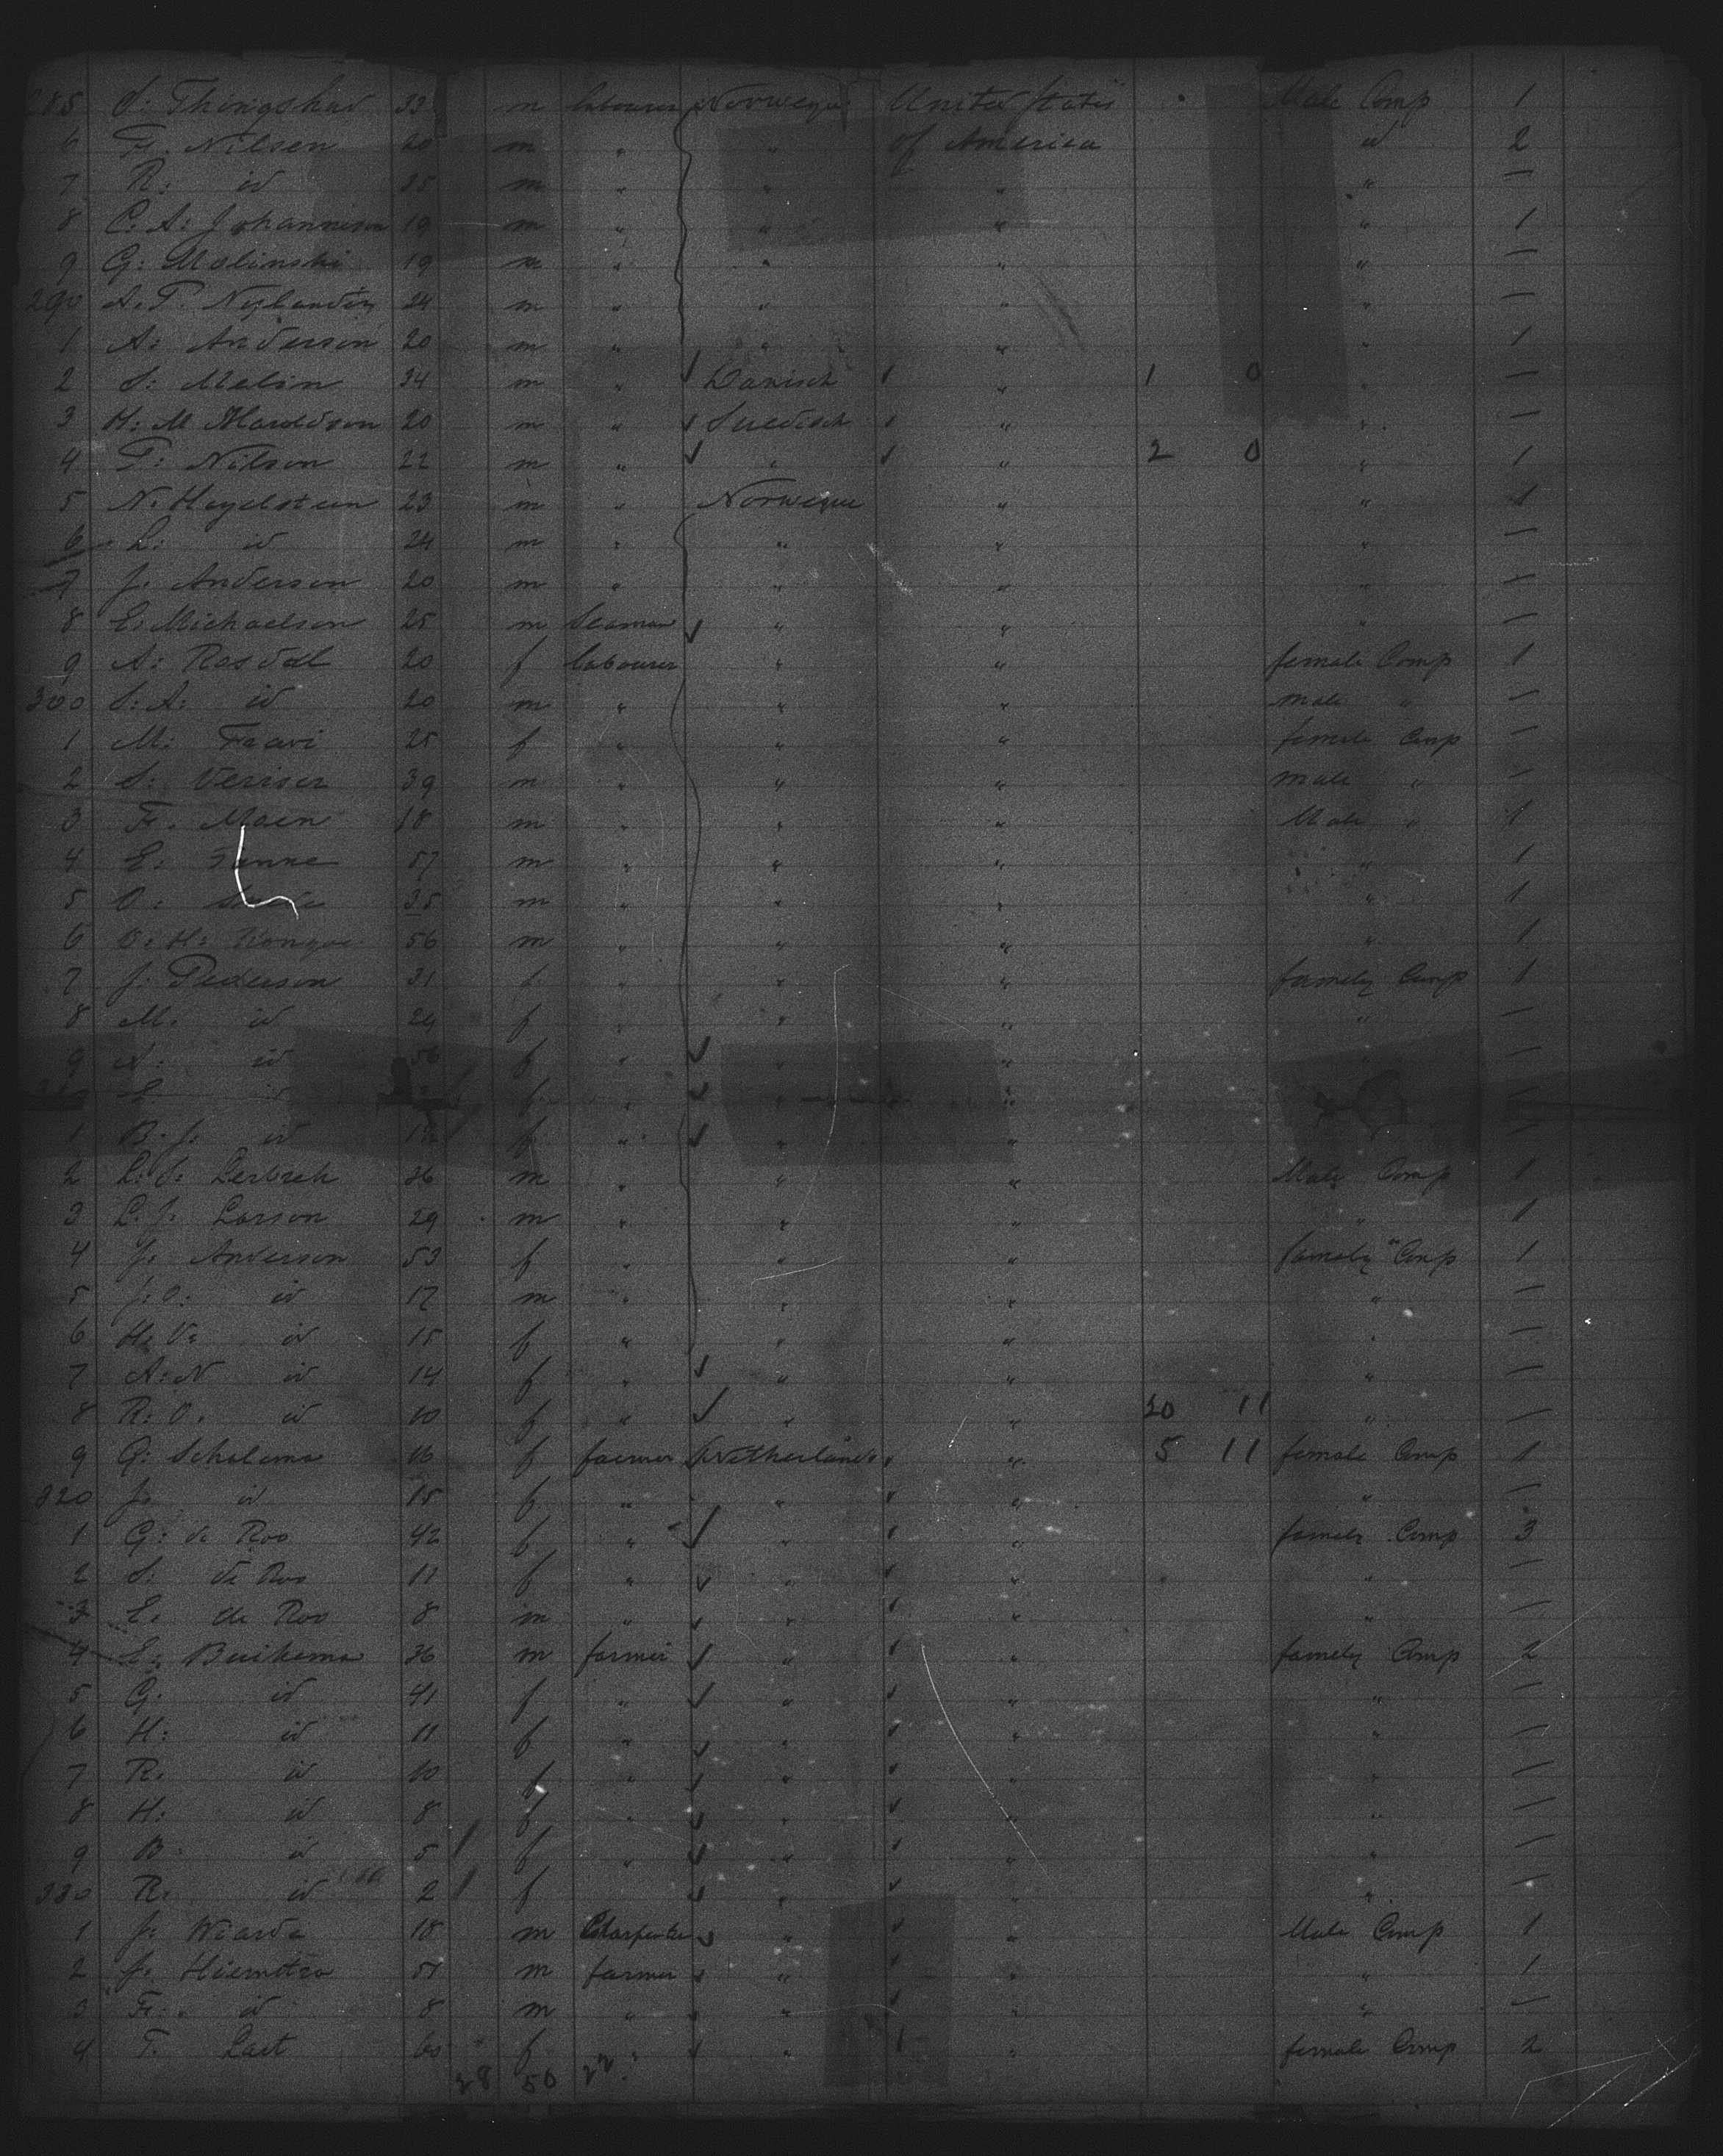 285 S: Thingshav 33 m labourer Norwegue United States Male Comp 1
6 F. Nilsen 20 m " " of America id 2
7 R: id 25 m " " " " —
8 C. A: Johannison 19 m " " " " 1
9 G: Molinski 19 m " " " " —
290 A. P. Nylander 24 m " " " " —
1 A: Anderson 20 m " " " " 1
2 S: Melin 34 m " Danisch " 1 0 " —
3 H: M Haroldson 20 m " Suedisch " " —
4 P: Nilson 22 m " " " 2 0 " 1
5 N. Hegelsteen 23 m " Norwegue " " 1
6 L: id 24 m " " " " —
7 J. Anderson 20 m " " " " —
8 E. Michaelson 25 m Seaman " " " —
9 A: Rosdal 20 f labourer " " female Comp 1
300 S: A: id 20 m " " " male " —
1 M: 25 f " " " female Comp —
2 S: Veriser 39 m " " " male " —
3 F. Moen 18 m " " " Male " 1
4 E: 57 m " " " " 1
5 O: 35 m " " " " 1
6 O: H: 56 m " " " " 1
7 J: Pederson 31 f " " " famely Comp 1
8 M. id 24 f " " " " —
9 A: id 56 f " " " " —
id f " " " —
1 B. J. id f " " " —
2 L: S: 36 m " " " Male Comp 1
3 L. J: Larson 29 m " " " " 1
4 J. Anderson 53 f " " " famely Comp 1
5 J: O: id 17 m " " " " —
6 H. V: id 15 f " " " " —
7 A: N id 14 f " " " " —
8 R: O. id 10 f " " " 20 11 " —
9 G: Schalema 16 f farmer Netherlands " 5 11 female Comp 1
320 J. id 15 f " " " " —
1 G: de Roo 42 f " " " famely Comp 3
2 S: de Roo 11 f " " " " —
3 E. de Roo 8 m " " " " —
4 E. Buikema 36 m farmer " " famely Comp 2
5 G. id 41 f " " " " —
6 H: id 11 f " " " " —
7 R. id 10 f " " " " —
8 H: id 8 f " " " " —
9 B. id 5 f " " " " —
330 R. id 2 f " " " —
1 J. Wiarda 18 m Carpenter " " Male Comp 1
2 J. Hiemstra 51 m farmer " " " 1
3 F. id 8 m " " " " —
4 T. Last 60 f " " " female Comp 2
28 50